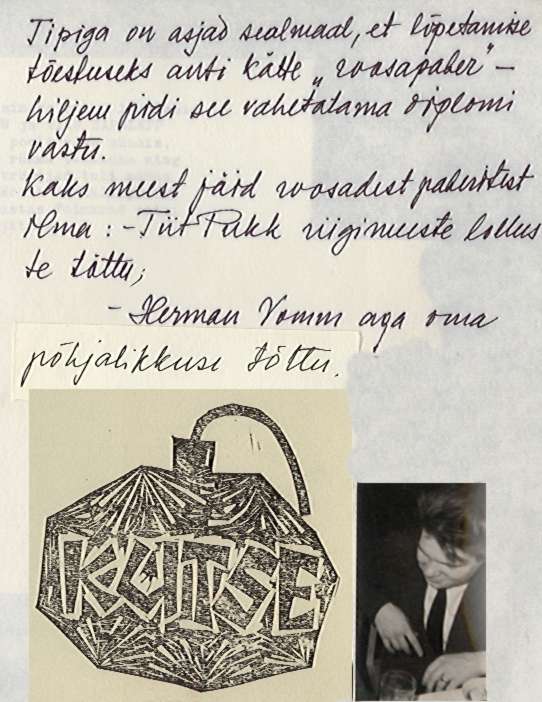 Tipiga on asjad sealmaal, et lõpetamise
tõestuseks anti kätte „roosapaber" –
hiljem pidi see vahetatama diplomi
vastu.
Kaks meest jäid roosadest paberitest
ilma : – Tiit Pukk riigimeeste lollus
te tõttu;
– Herman Vomm aga oma
põhjalikkuse tõttu.
KUTSE